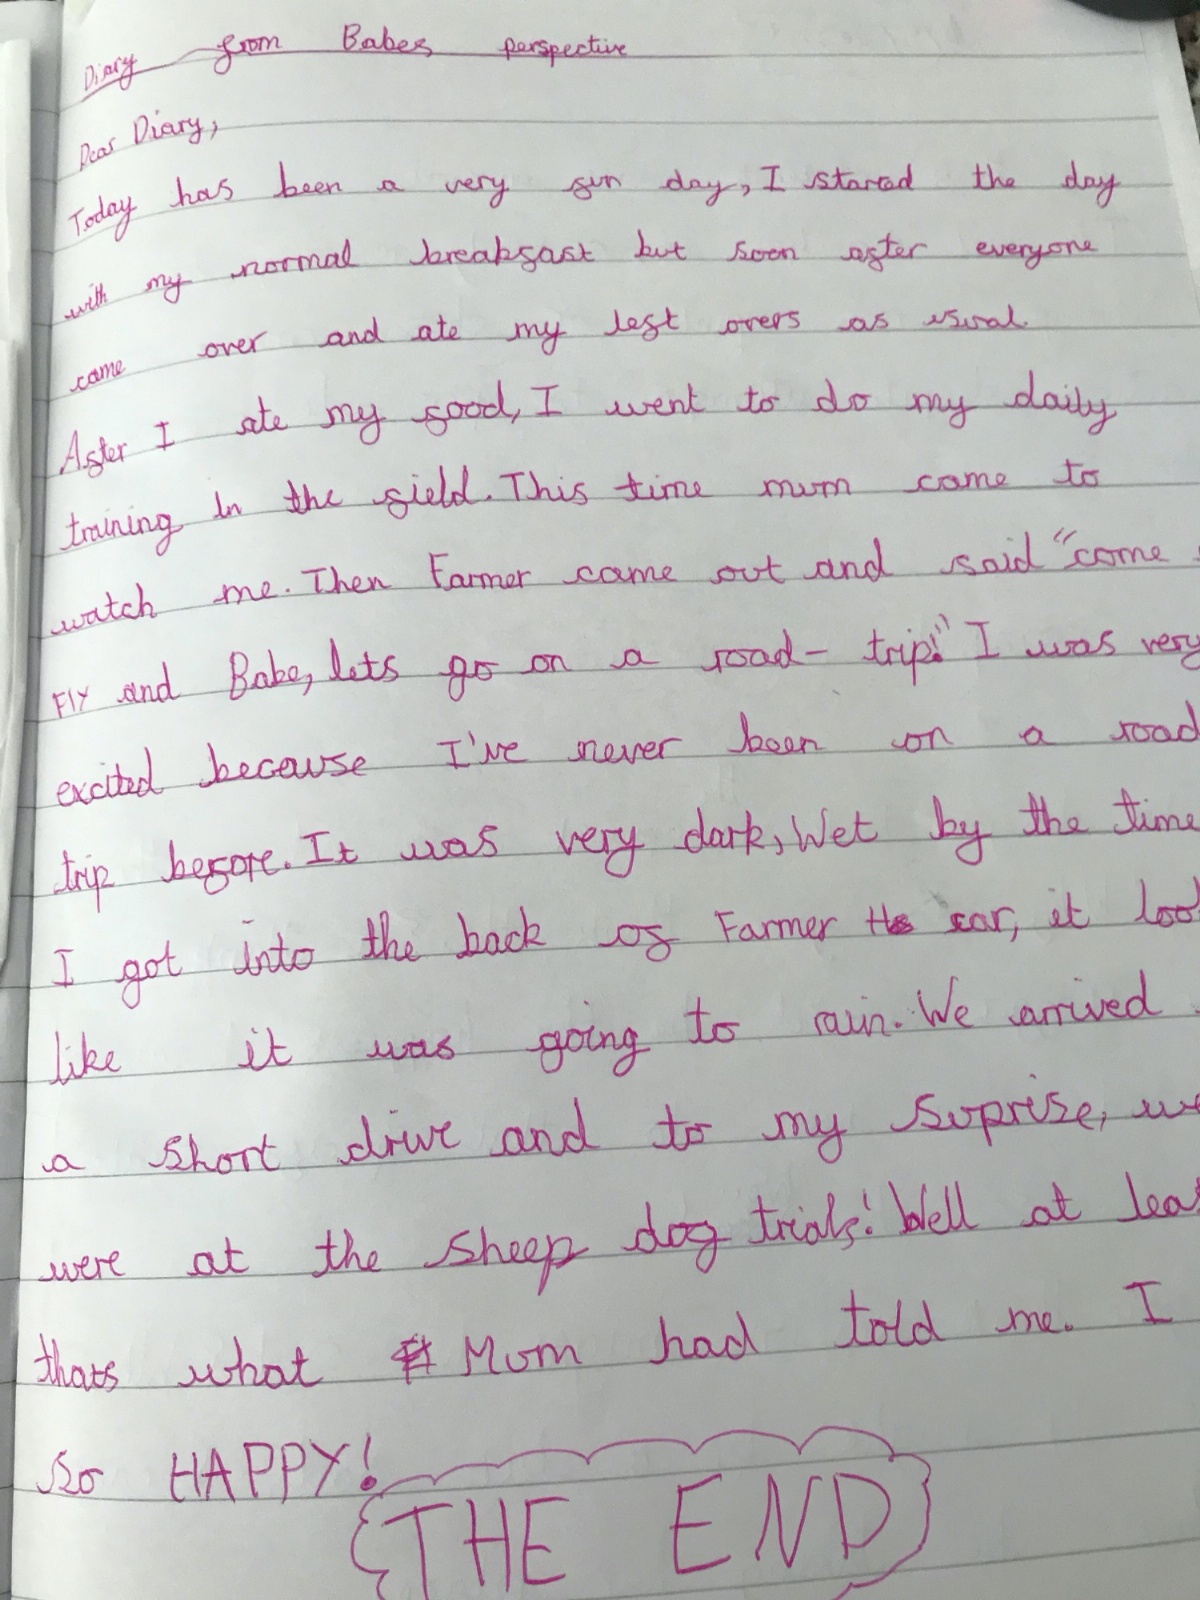 Diary from Babes perspective
Dear Diary,
Today has been a very fun day, I stared the day
with my normal breakfast but soon after everyone
came over and ate my left overs as usual.
After I ate my food, I went to do my daily
training In the field. This time mum came to
watch me. Then Farmer came out and said "come
FLY and Babe, lets go on a road- trip!" I was very
excited because I've never been on a road
trip before. It was very dark, Wet by the time
I got into the back of Farmer car, it loo
like it was going to rain. We arrived
a short drive and to my suprise, we
were at the sheep dog trials! Well at leas
thats what Mum had told me. I
so HAPPY!
THE END